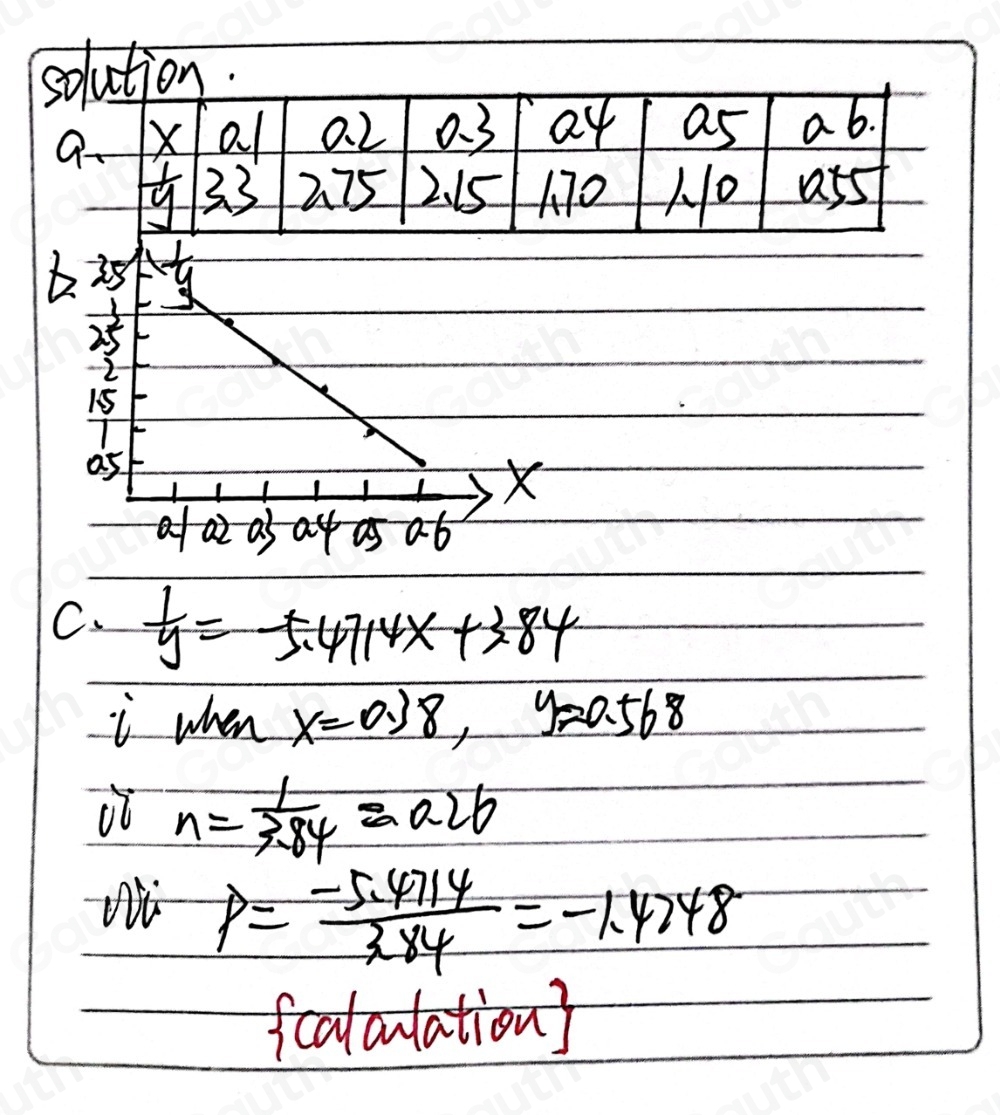 solution.
a. x 0.1 0.2 0.3 0.4 0.5 0.6.
1/y 3.3 2.75 2.15 1.70 1.10 0.55
b 3.5 1/y
3
2.5
2
1.5
1
0.5
x
0.1 0.2 0.3 0.4 0.5 0.6
c. 1/y = -5.4714x + 3.84
i when x = 0.38, y≈0.568
ii n = 1/3.84 ≈ 0.26
iii P = -5.4714/3.84 = -1.4248
{calculation}